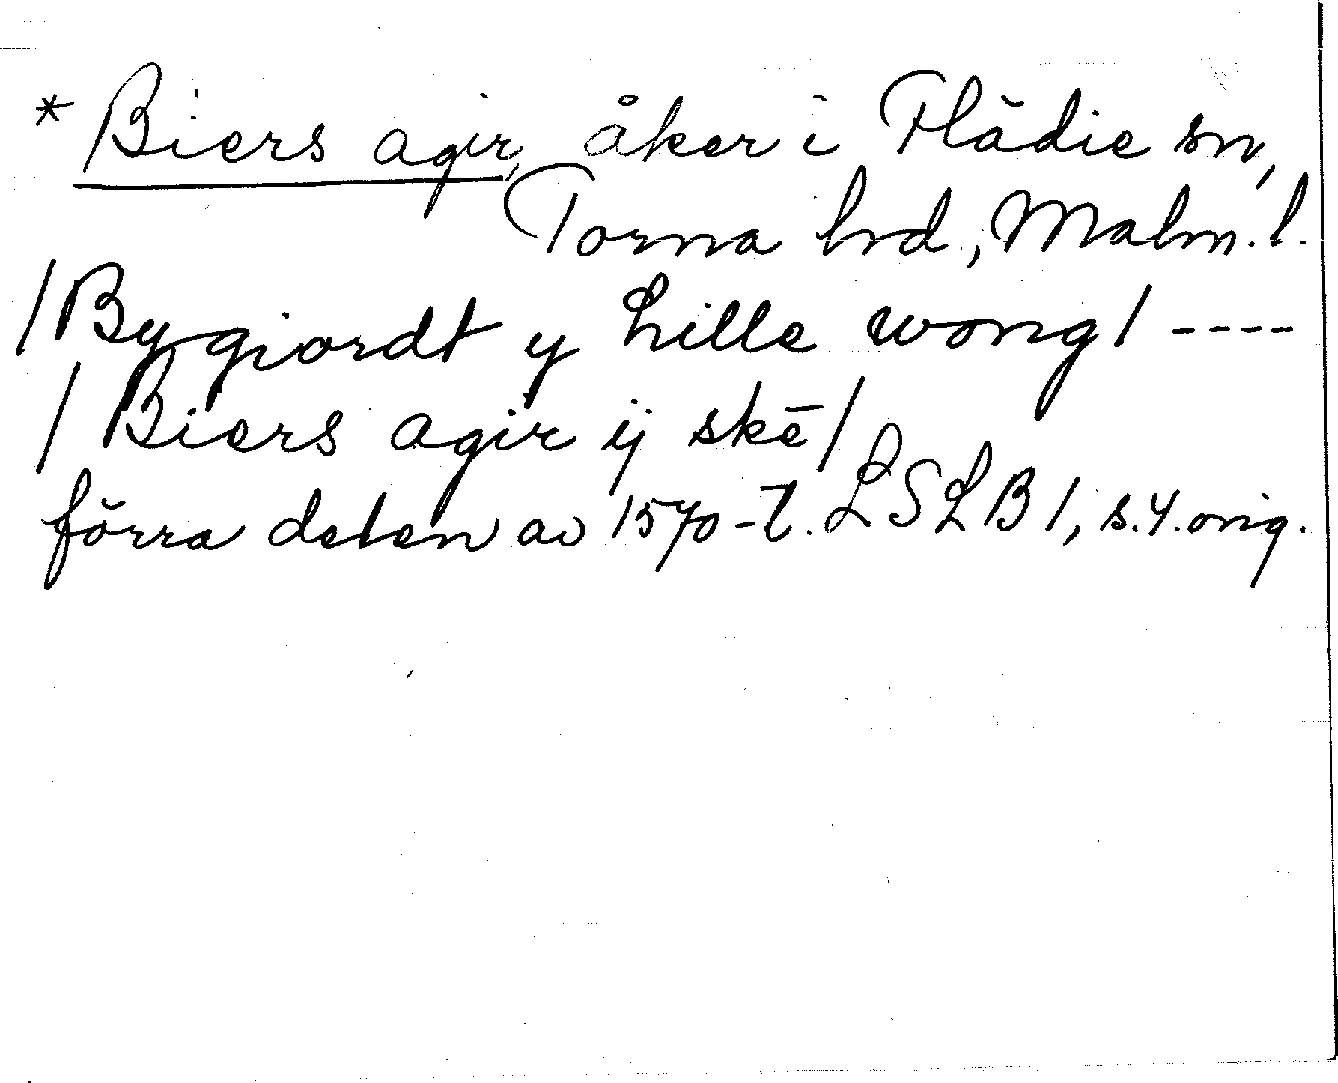 * Biers agir, åker i Flädie sn,
Torna hrd, Malm. l.
/Bygiordt y hille wong/ ----
/Biers agir ij skē/
förra delen av 1570-t. LSLB 1, s. 4. orig.